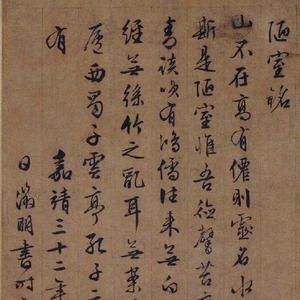 陋室銘
山不在高有僊則靈名水
斯是陋室惟吾德馨苔
青談笑有鴻儒往来無白
經無絲竹之亂耳無案
廬西蜀子雲亭孔子
有
嘉靖三十二年
日徵明書時